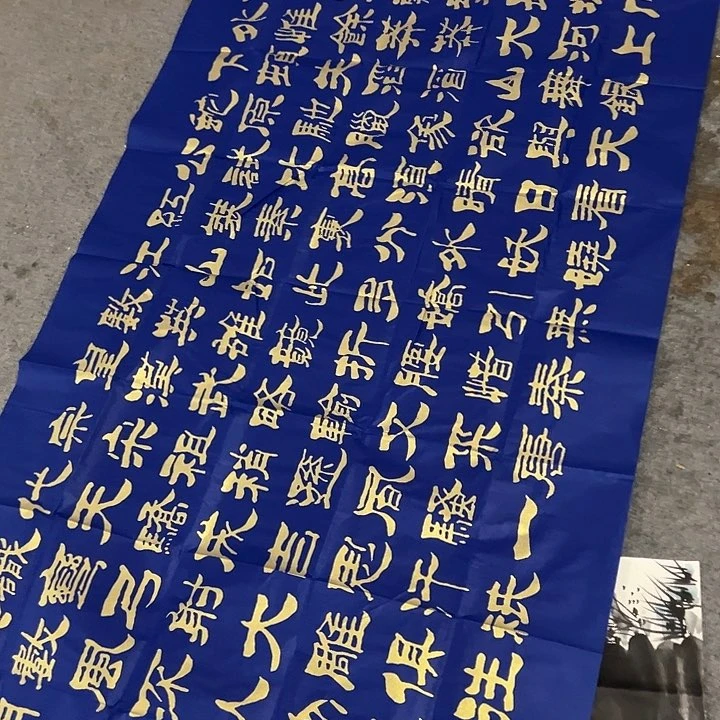 外惟餘莽莽大河上
下頓失滔滔山舞銀
蛇原馳臘象欲與天
公試比高須晴日看
紅裝素裹分外妖嬈
江山如此多嬌引無
數英雄競折腰惜秦
皇漢武略輸文采唐
宗宋祖稍遜風騷一
代天驕成吉思汗祇
識彎弓射大雕俱往
數風流人